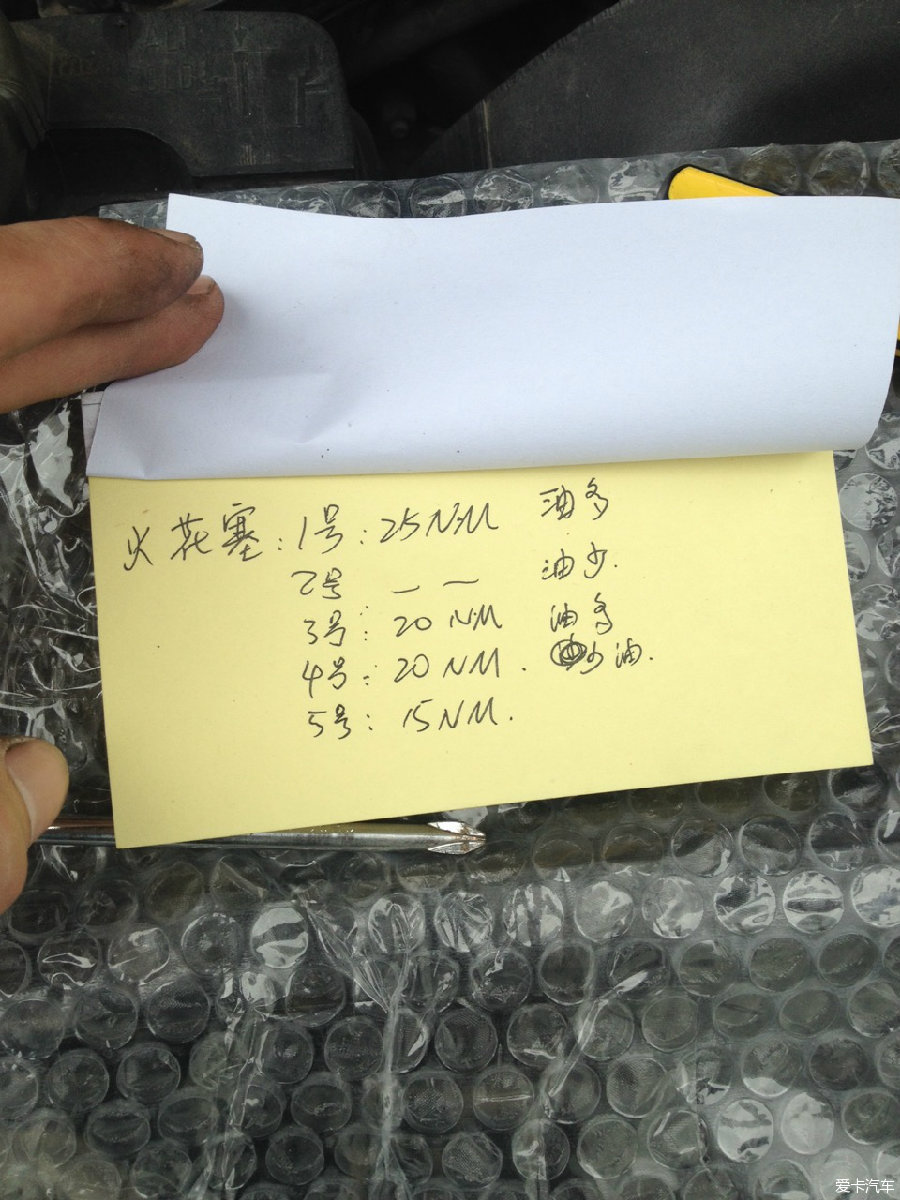 火花塞:1号:25N·M 油多
2号 — — 油少.
3号: 20 N·M 油多
4号: 20 NM. 少油.
5号: 15NM.
爱卡汽车